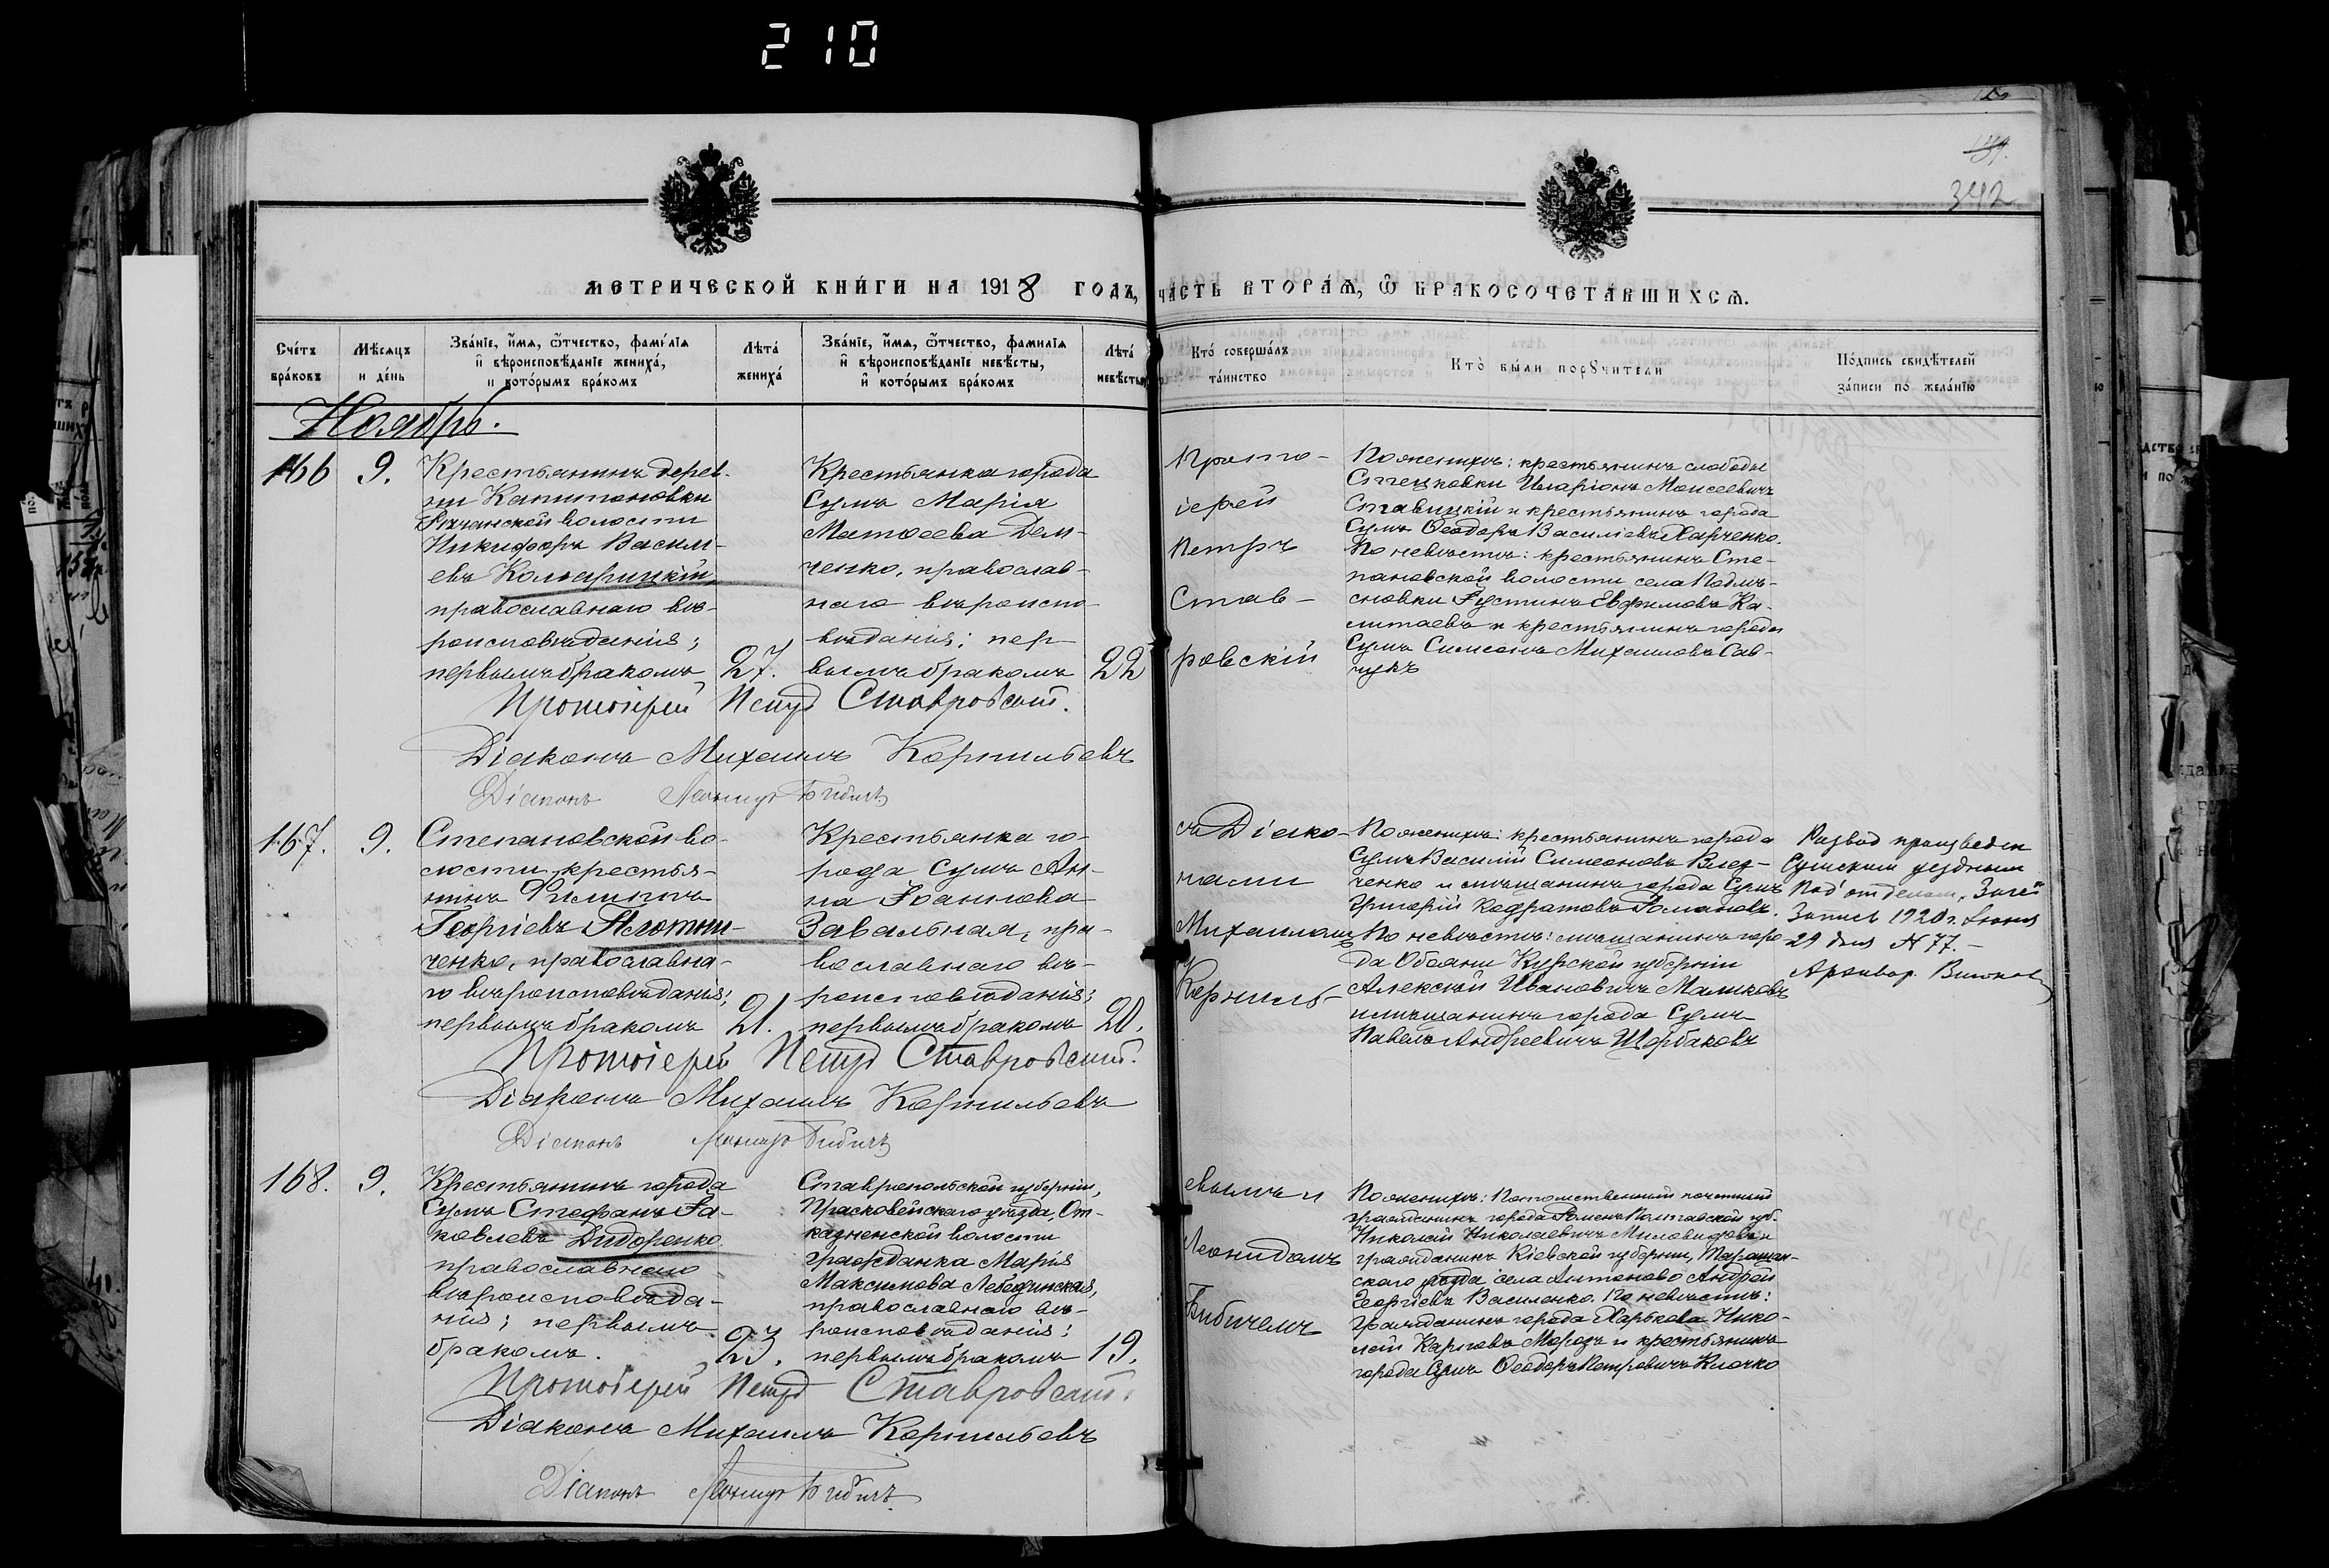 210
139.
342
МЕТРИЧЕСКОЙ КНИ́ГИ НА 1918 ГОДЪ, ЧАСТЬ ВТОРА́Ѧ, Ѿ БРАКОСОЧЕТАВШИХСѦ.
Сче́тъ бра́ковъ
Мѣ́сяцъ и де́нь
Зва́нїе, и́мѧ, ѻ҆́тчество, фами́лїѧ и҆ вѣроисповѣ́данїе жениха̀, и҆ кото́рымъ бра́комъ
Лѣта̀ жениха̀
Зва́нїе, и́мѧ, ѻ҆́тчество, фами́лїѧ и҆ вѣроисповѣ́данїе невѣ́сты, и҆ кото́рымъ бра́комъ
Лѣта̀ невѣ́сты
Кто̀ соверша́лъ та́инство
Кто̀ бы́ли порꙋчи́тели
По́дпись свидѣ́телей за́писи по жела́нїю
Ноябрь.
166
9.
Крестьянинъ дерев-
ни Капитановки
волости
Никифоръ Василі-
евъ
православнаго вѣ-
роисповѣданія;
первымъ бракомъ
27.
Крестьянка города
Сумъ Марія
Матѳеева Дем-
ченко, православ-
наго вѣроиспо-
вѣданія; пер-
вымъ бракомъ
22
Прото-
іерей
Петръ
Став-
ровскій
По женихѣ: крестьянинъ слободы
Стецковки Иларіонъ Моисеевичъ
Ставицкій и крестьянинъ города
Сумъ Ѳеодоръ Василіевъ Харченко.
По невѣстѣ: крестьянинъ Сте-
пановской волости села Подлѣ-
сновки Іустинъ Евфимовъ Ка-
литаевъ и крестьянинъ города
Сумъ Симеонъ Михаиловъ Сав-
чукъ
Протоіерей Петръ Ставровскій.
Діаконъ Михаилъ Корнильевъ
Діаконъ Леонидъ Бибичъ
167.
9.
Степановской во-
лости крестья-
нинъ Филиппъ
Георгіевъ Плотни-
ченко, православна-
го вѣроисповѣданія;
первымъ бракомъ
21.
Крестьянка го-
рода Сумъ Ан-
на Іоаннова
Завальная, пра-
вославнаго вѣ-
роисповѣданія;
первымъ бракомъ
20.
съ Діако-
нами
Михаиломъ
Корниль-
По женихѣ: крестьянинъ города
Сумъ Василій Симеоновъ
ченко и мѣщанинъ города Сумъ
Григорій Кодратовъ Романовъ.
По невѣстѣ: мѣщанинъ горо-
да Обояни Курской губерніи
Алексѣй Ивановичъ Маликовъ
и мѣщанинъ города Сумъ
Павелъ Андреевичъ Щербаковъ
Развод произведен
Сумским уездным
Под'отделом "Загс"
Запись 1920 г. Июня
29 дня № 77.-
Архивар.
Протоіерей Петръ Ставровскій.
Діаконъ Михаилъ Корнильевъ
Діаконъ Леонидъ Бибичъ
168.
9.
Крестьянинъ города
Сумъ Стефанъ Іа-
ковлевъ Дидоренко
православнаго
вѣроисповѣда-
нія; первымъ
бракомъ.
23.
Ставропольской губерніи,
Прасковейскаго уѣзда, От-
казненской волости
гражданка Марія
Максимова Лебединская,
православнаго вѣ-
роисповѣданія;
первымъ бракомъ
19.
евымъ и
Леонидомъ
Бибичемъ
По женихѣ: Потомственный почетный
гражданинъ города Роменъ Полтавской губ.
Николай Николаевичъ Миловидовъ и
гражданинъ Кіевской губерніи, Таращан-
скаго уѣзда села Антоново Андрей
Георгіевъ Василенко. По невѣстѣ:
гражданинъ города Харькова Нико-
лай Карповъ Морозъ и крестьянинъ
города Сумъ Ѳеодоръ Петровичъ Клочко
Протоіерей Петръ Ставровскій.
Діаконъ Михаилъ Корнильевъ
Діаконъ Леонидъ Бибичъ